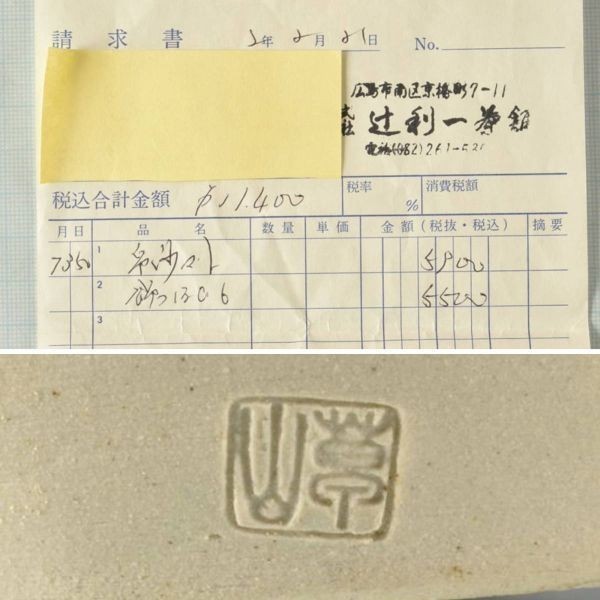 請求書 2年2月21日 No.
広島市南区京橋町7-11
式 社 辻利一茶舗
電話(082)261-53
税込合計金額 ¥11,400 税率 % 消費税額
月日 品名 数量 単価 金額(税抜・税込) 摘要
1 5900
2 5500
3